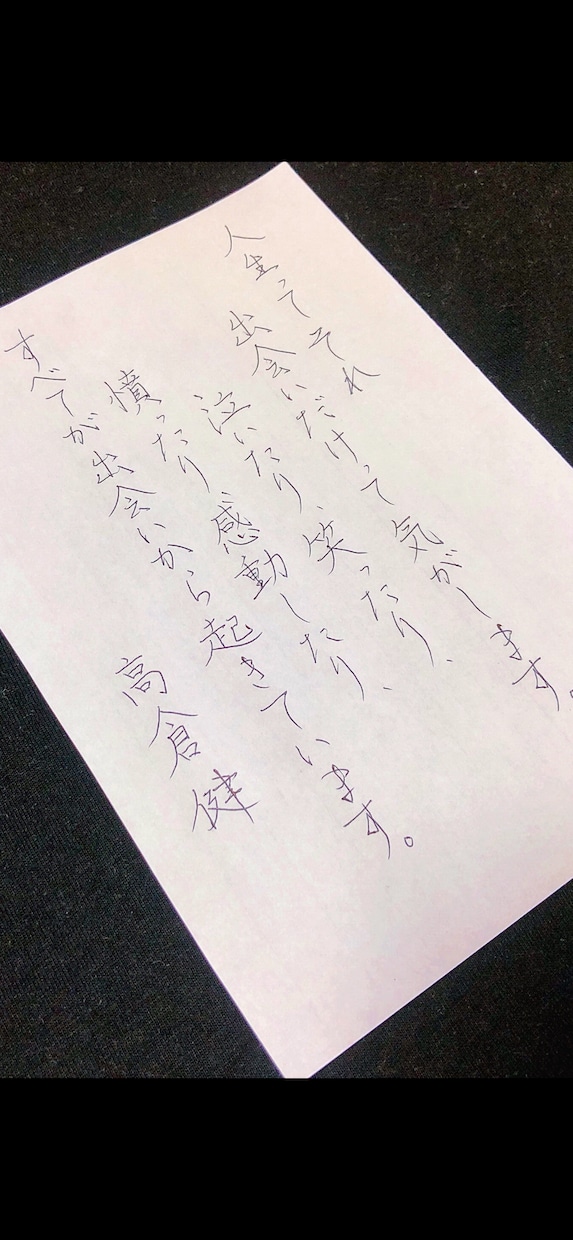 人生ってそれ
出会いだけって気がします。
泣いたり、笑ったり、
憤ったり、感動したり、
すべてが出会いから起きています。
高倉健